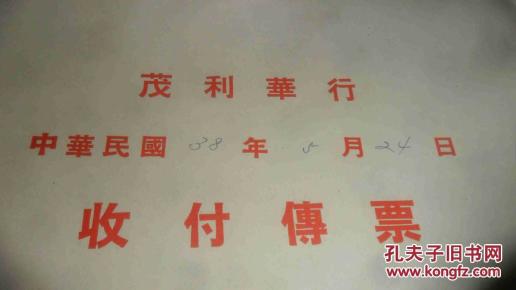 茂利華行
中華民國 38 年 5 月 24 日
收付傳票
孔夫子旧书网
www.kongfz.com